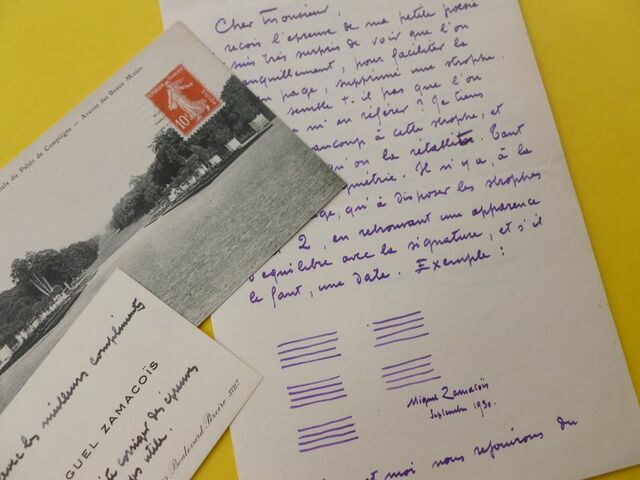 Cher Monsieur,
reçois l'épreuve de ma petite poésie
suis très surpris de voir que l'on
anquillement, pour faciliter la
en page, supprimé une strophe.
semble-t-il pas que l'on
m'en référer ? Je tiens
aucoup à cette strophe, et
qu'on la rétablite tant
métrie. Il n'y a, à la
ge, qu'à disposer les strophes
2, en retrouvant une apparence
d'équilibre avec la signature, et s'il
le faut, une date. Exemple :
Miguel Zamacoïs
Septembre 1930.
et moi nous rejouirons du
du Palais de Compiègne - Avenue des Beaux Monts
10c
POSTES
avec les meilleurs compliments
GUEL ZAMACOÏS
corriger des épreuves
utile.
Boulevard Pereire XVIIe